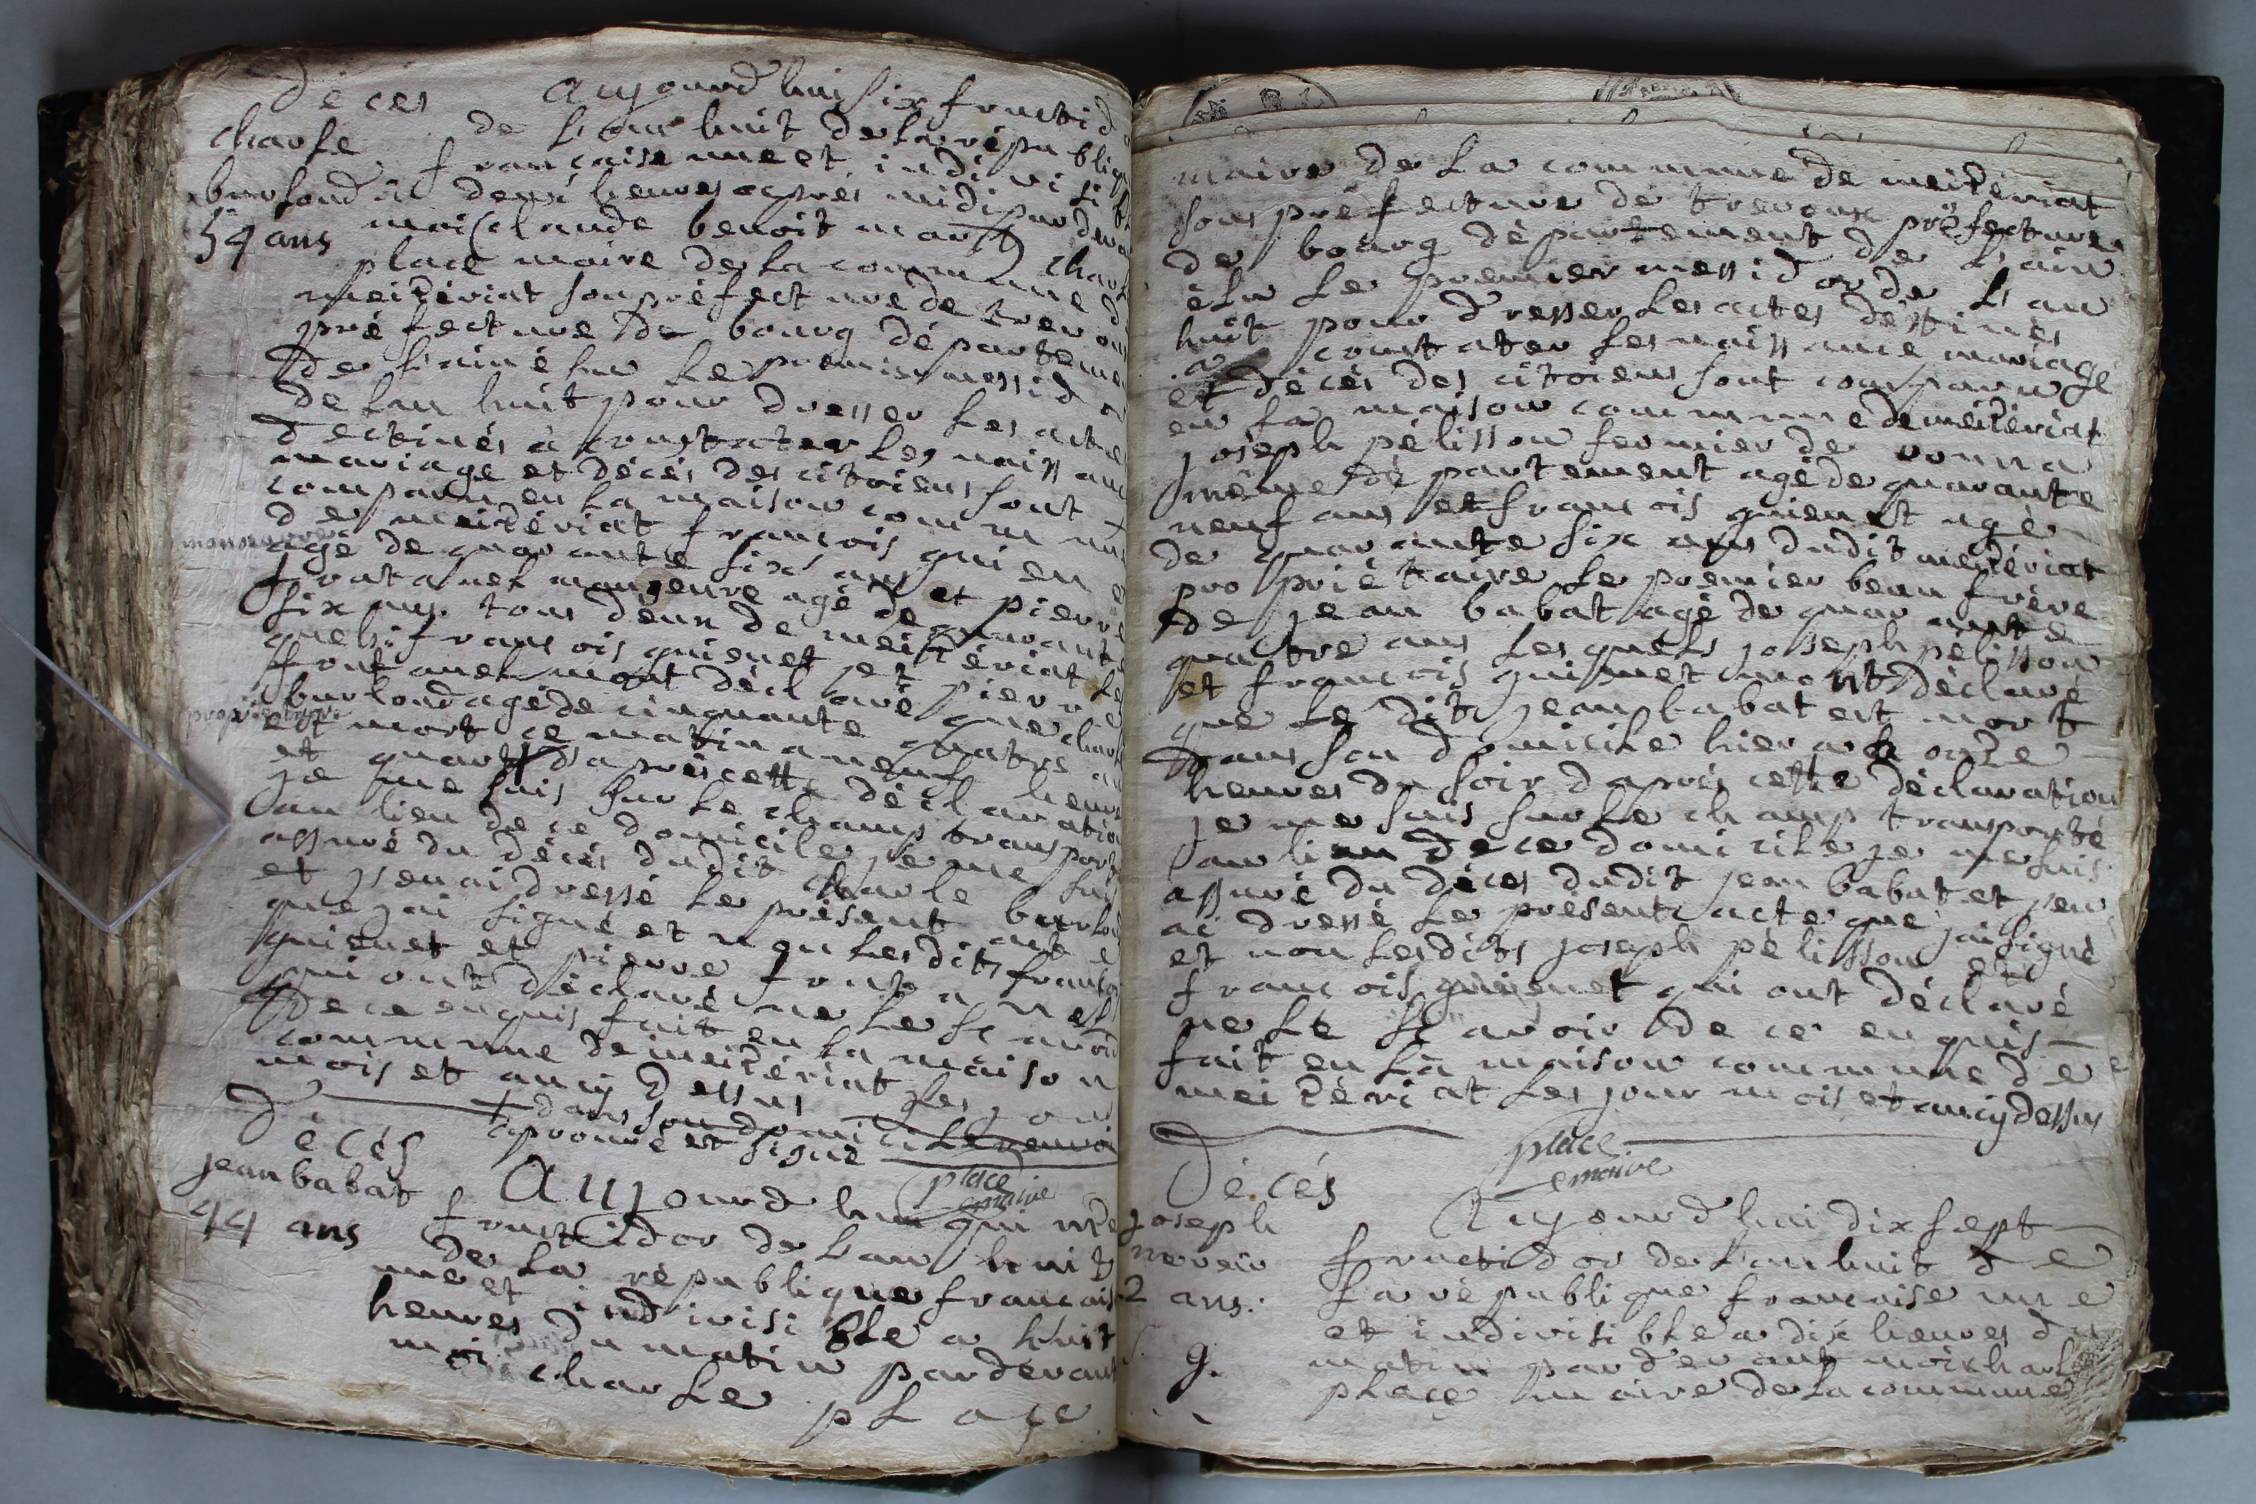 Décès Aujourd'hui six fructid
charle de L'an huit de la républiq
burlond française une et indivisi
54 ans à deux heures après midi par deva
moi claude benoit mar charl
place maire de la commune d
meizériat sou préfecture de trevou
préfecture de bourg département
de L'ain élu Le premier messid
de L'an huit pour dresser Les acte
destinés à constater Les naissan
mariage et décès des citoiens sont
comparu en La maison commun
de meizériat françois quienet
agé de quarante six ans et pierre
fratanel mangeure agé de quarante
six ans tous deux de meizériat Les
quels françois quienet et pierre
frontanel mont déclaré que charl
burlond agé de cinquante quatre an
est mort ce matin a neuf heure
et quart d'après cette déclaration
je me suis sur Le champ transport
au lieu de ce domicile je me sui
assuré du décès dudit charle burlon
et j'en ai dressé Le présent acte
que jai signé et non Lesdits françoi
quienet et pierre frontanel
qui ont déclaré ne Le sçavoir
de ce enquis fait en La maison
commune de meizériat Les jour
mois et an cy dessus
+ dans son domicile renvoi
aprouvé et signé
place
maire
Décès
jean babat Aujourd'hui quinze
44 ans fructidor de L'an huit
de La république français
une et indivisible a huit
heures du matin par devant
moi charle place
maire de La commune de meizériat
sous préfecture de trevoux préfecture
de bourg département de L'ain
élu Le premier messidor de L'an
huit pour dresser Les actes destinés
a constater Les naissance mariage
et décès des citoiens sont comparu
en La maison commune de meizériat
joseph pélisson fermier de vonna
même département agé de quarante
neuf ans et françois quienet agé
de quarante six ans dudit meizériat
propriétaire Le premier beau frère
de jean babat agé de quarante
quatre ans Lesquels joseph pélisson
et françois quienet mont déclaré
que Le dit jean babat est mort
dans son domicile hier a onze
heures du soir d'après cette déclaration
je me suis sur Le champ transporté
au lieu de ce domicile je me suis
assuré du décès dudit jean babat et j'en
ai dressé Le présent acte que jai signé
et non Lesdits joseph pélisson et
françois quienet qui ont déclaré
ne Le sçavoir de ce enquis
fait en La maison commune de
meizériat Les jour mois et an cy dessus
place
maire
Décès
joseph Aujourd'hui dix sept
fructidor de L'an huit de
2 ans. La république française une
et indivisible a dix heures du
9. matin par devant moi charle
place maire de La commune